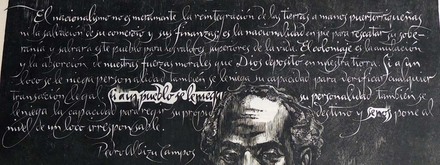 El nacionalismo no es meramente la reintegración de las tierras a manos puertorriqueñas
ni la salvación de su comercio y sus finanzas; es la nacionalidad en pie para rescatar su sobe-
ranía y salvar a este pueblo para los valores superiores de la vida. El coloniaje es la
y la absorción de nuestras fuerzas morales que Dios depositó en nuestra tierra. Si a un
loco se le niega personalidad también se le niega su capacidad para verificar cualquier
transacción legal. si a un pueblo se le niega su personalidad también se
le niega la capacidad para regir su propio destino y se le pone al
nivel de un loco irresponsable.
Pedro Albizu Campos